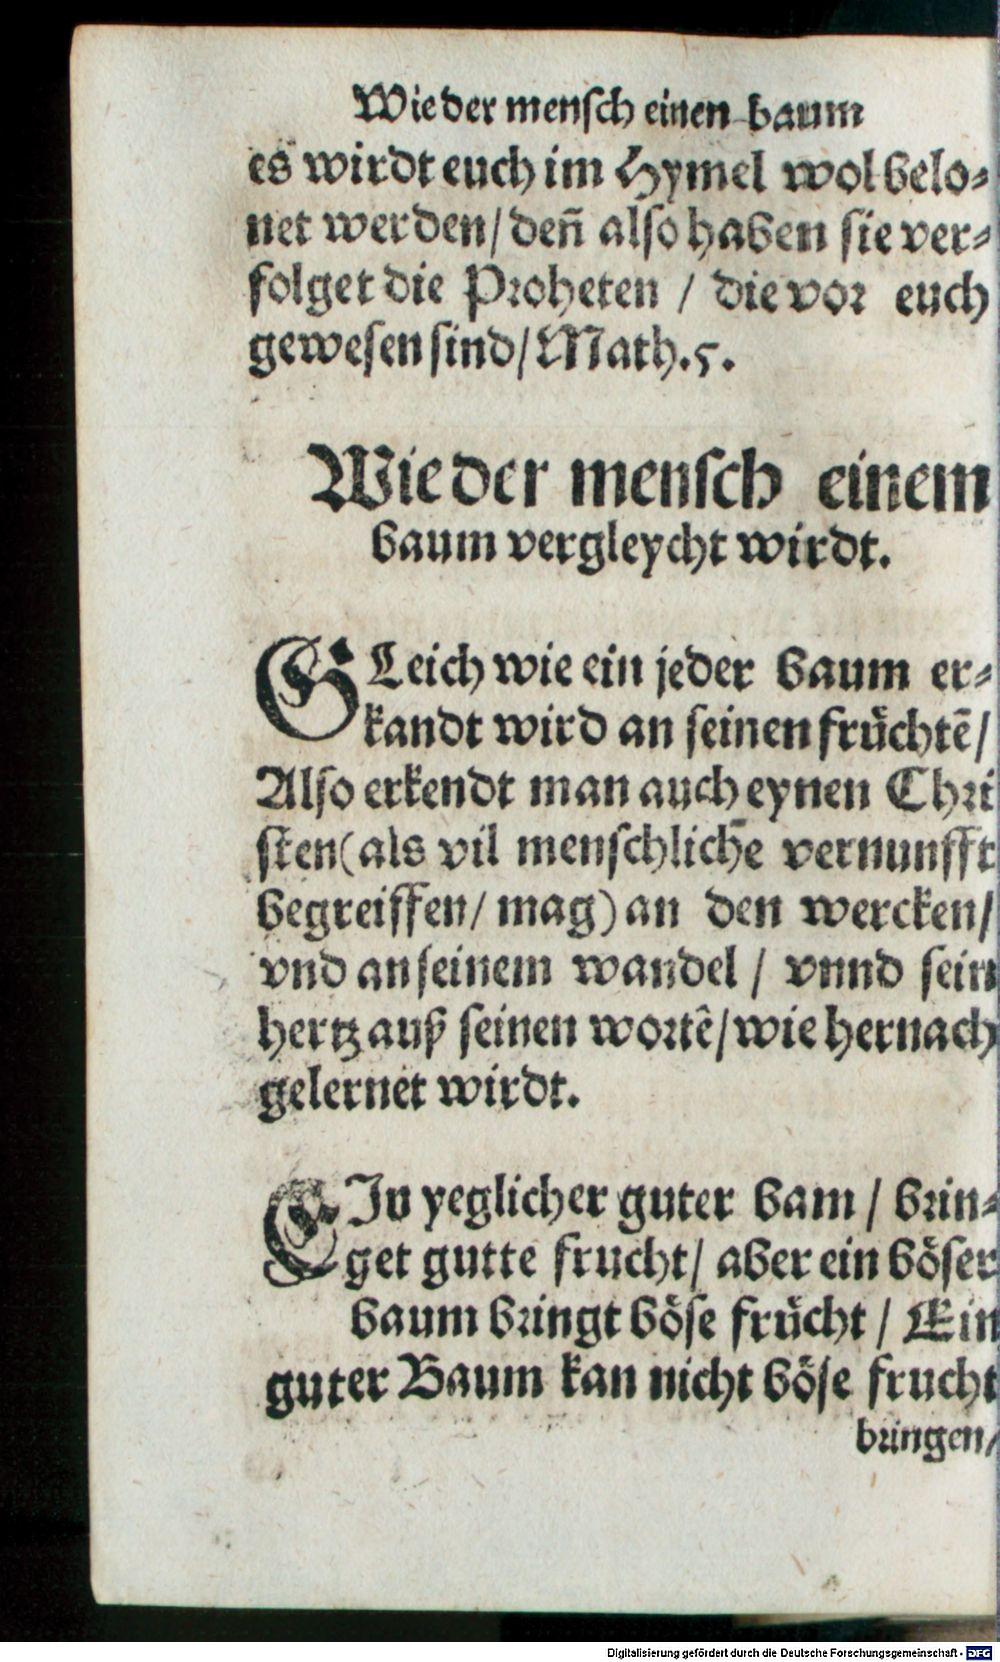 Wie der mensch einen baum
es wirdt euch im Hymel wol belo⸗
net werden/ deñ also haben sie ver⸗
folget die Proheten / die vor euch
gewesen sind/ Math.5.
Wie der mensch einem
baum vergleycht wirdt.
GLeich wie ein jeder baum er⸗
kandt wird an seinen früchtē/
Also erkendt man auch eynen Chri
sten (als vil menschlichē vernunfft
begreiffen/ mag) an den wercken/
vnd an seinem wandel / vnnd sein
hertz auß seinen wortē/ wie hernach
gelernet wirdt.
EIn yeglicher guter bam / brin⸗
get gutte frucht/ aber ein böser
baum bringt böse frücht / Ein
guter Baum kan nicht böse frucht
bringen/
Digitalisierung gefördert durch die Deutsche Forschungsgemeinschaft - DFG